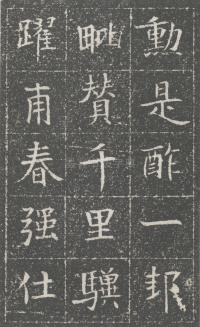 勳是酢一邦
贊千里驥
躍甫春强仕